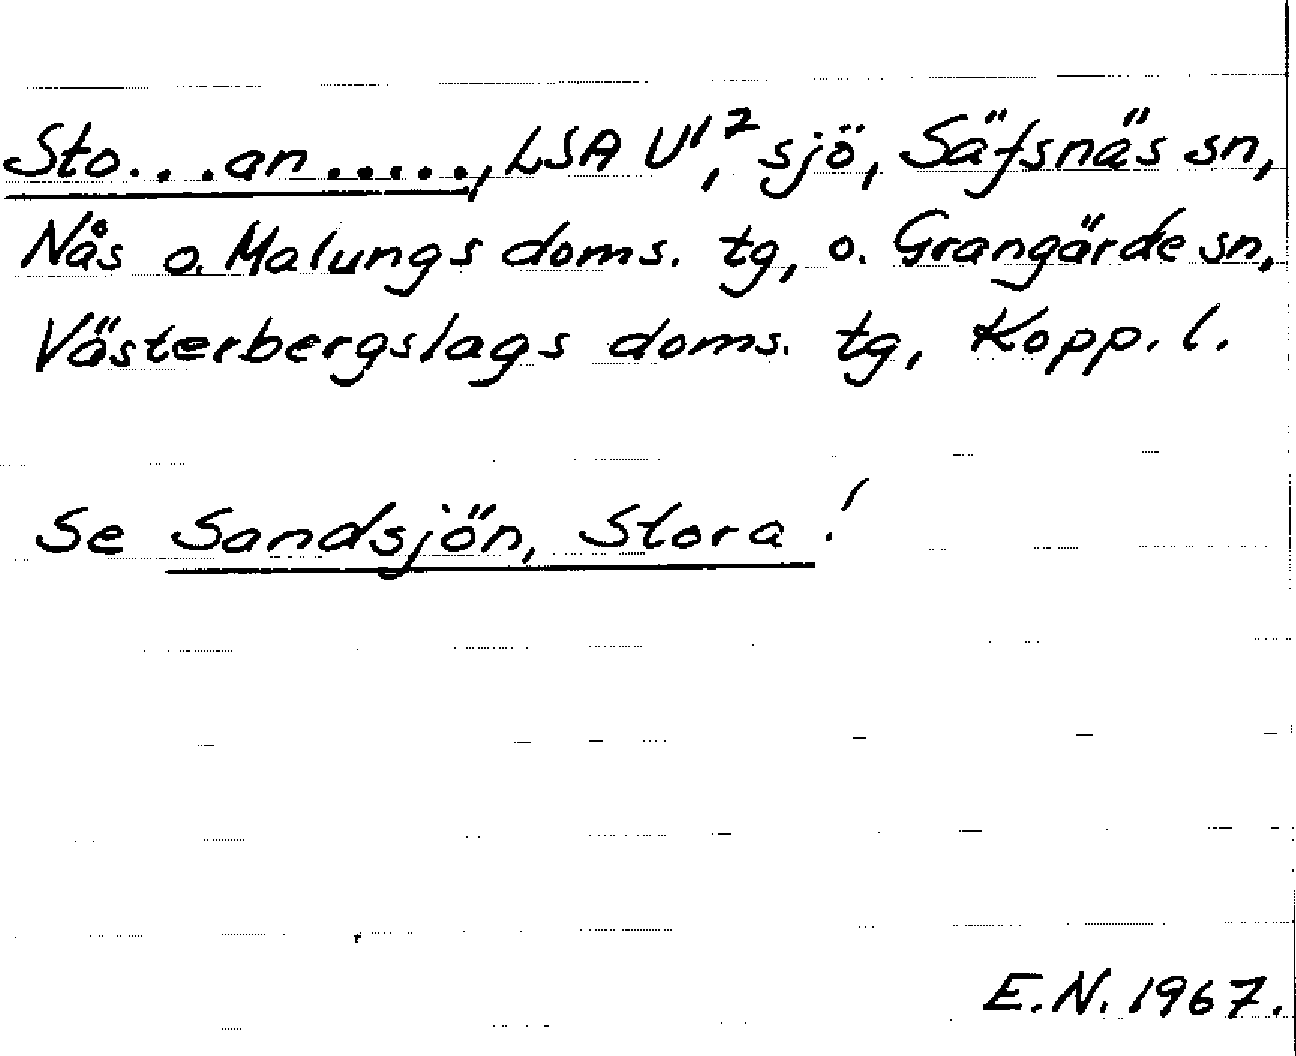 Sto...an....., LSA U¹,², sjö, Säfsnäs sn,
Nås o. Malungs doms. tg, o. Grangärde sn,
Västerbergslags doms. tg, Kopp. l.
Se Sandsjön, Stora!
E.N. 1967.